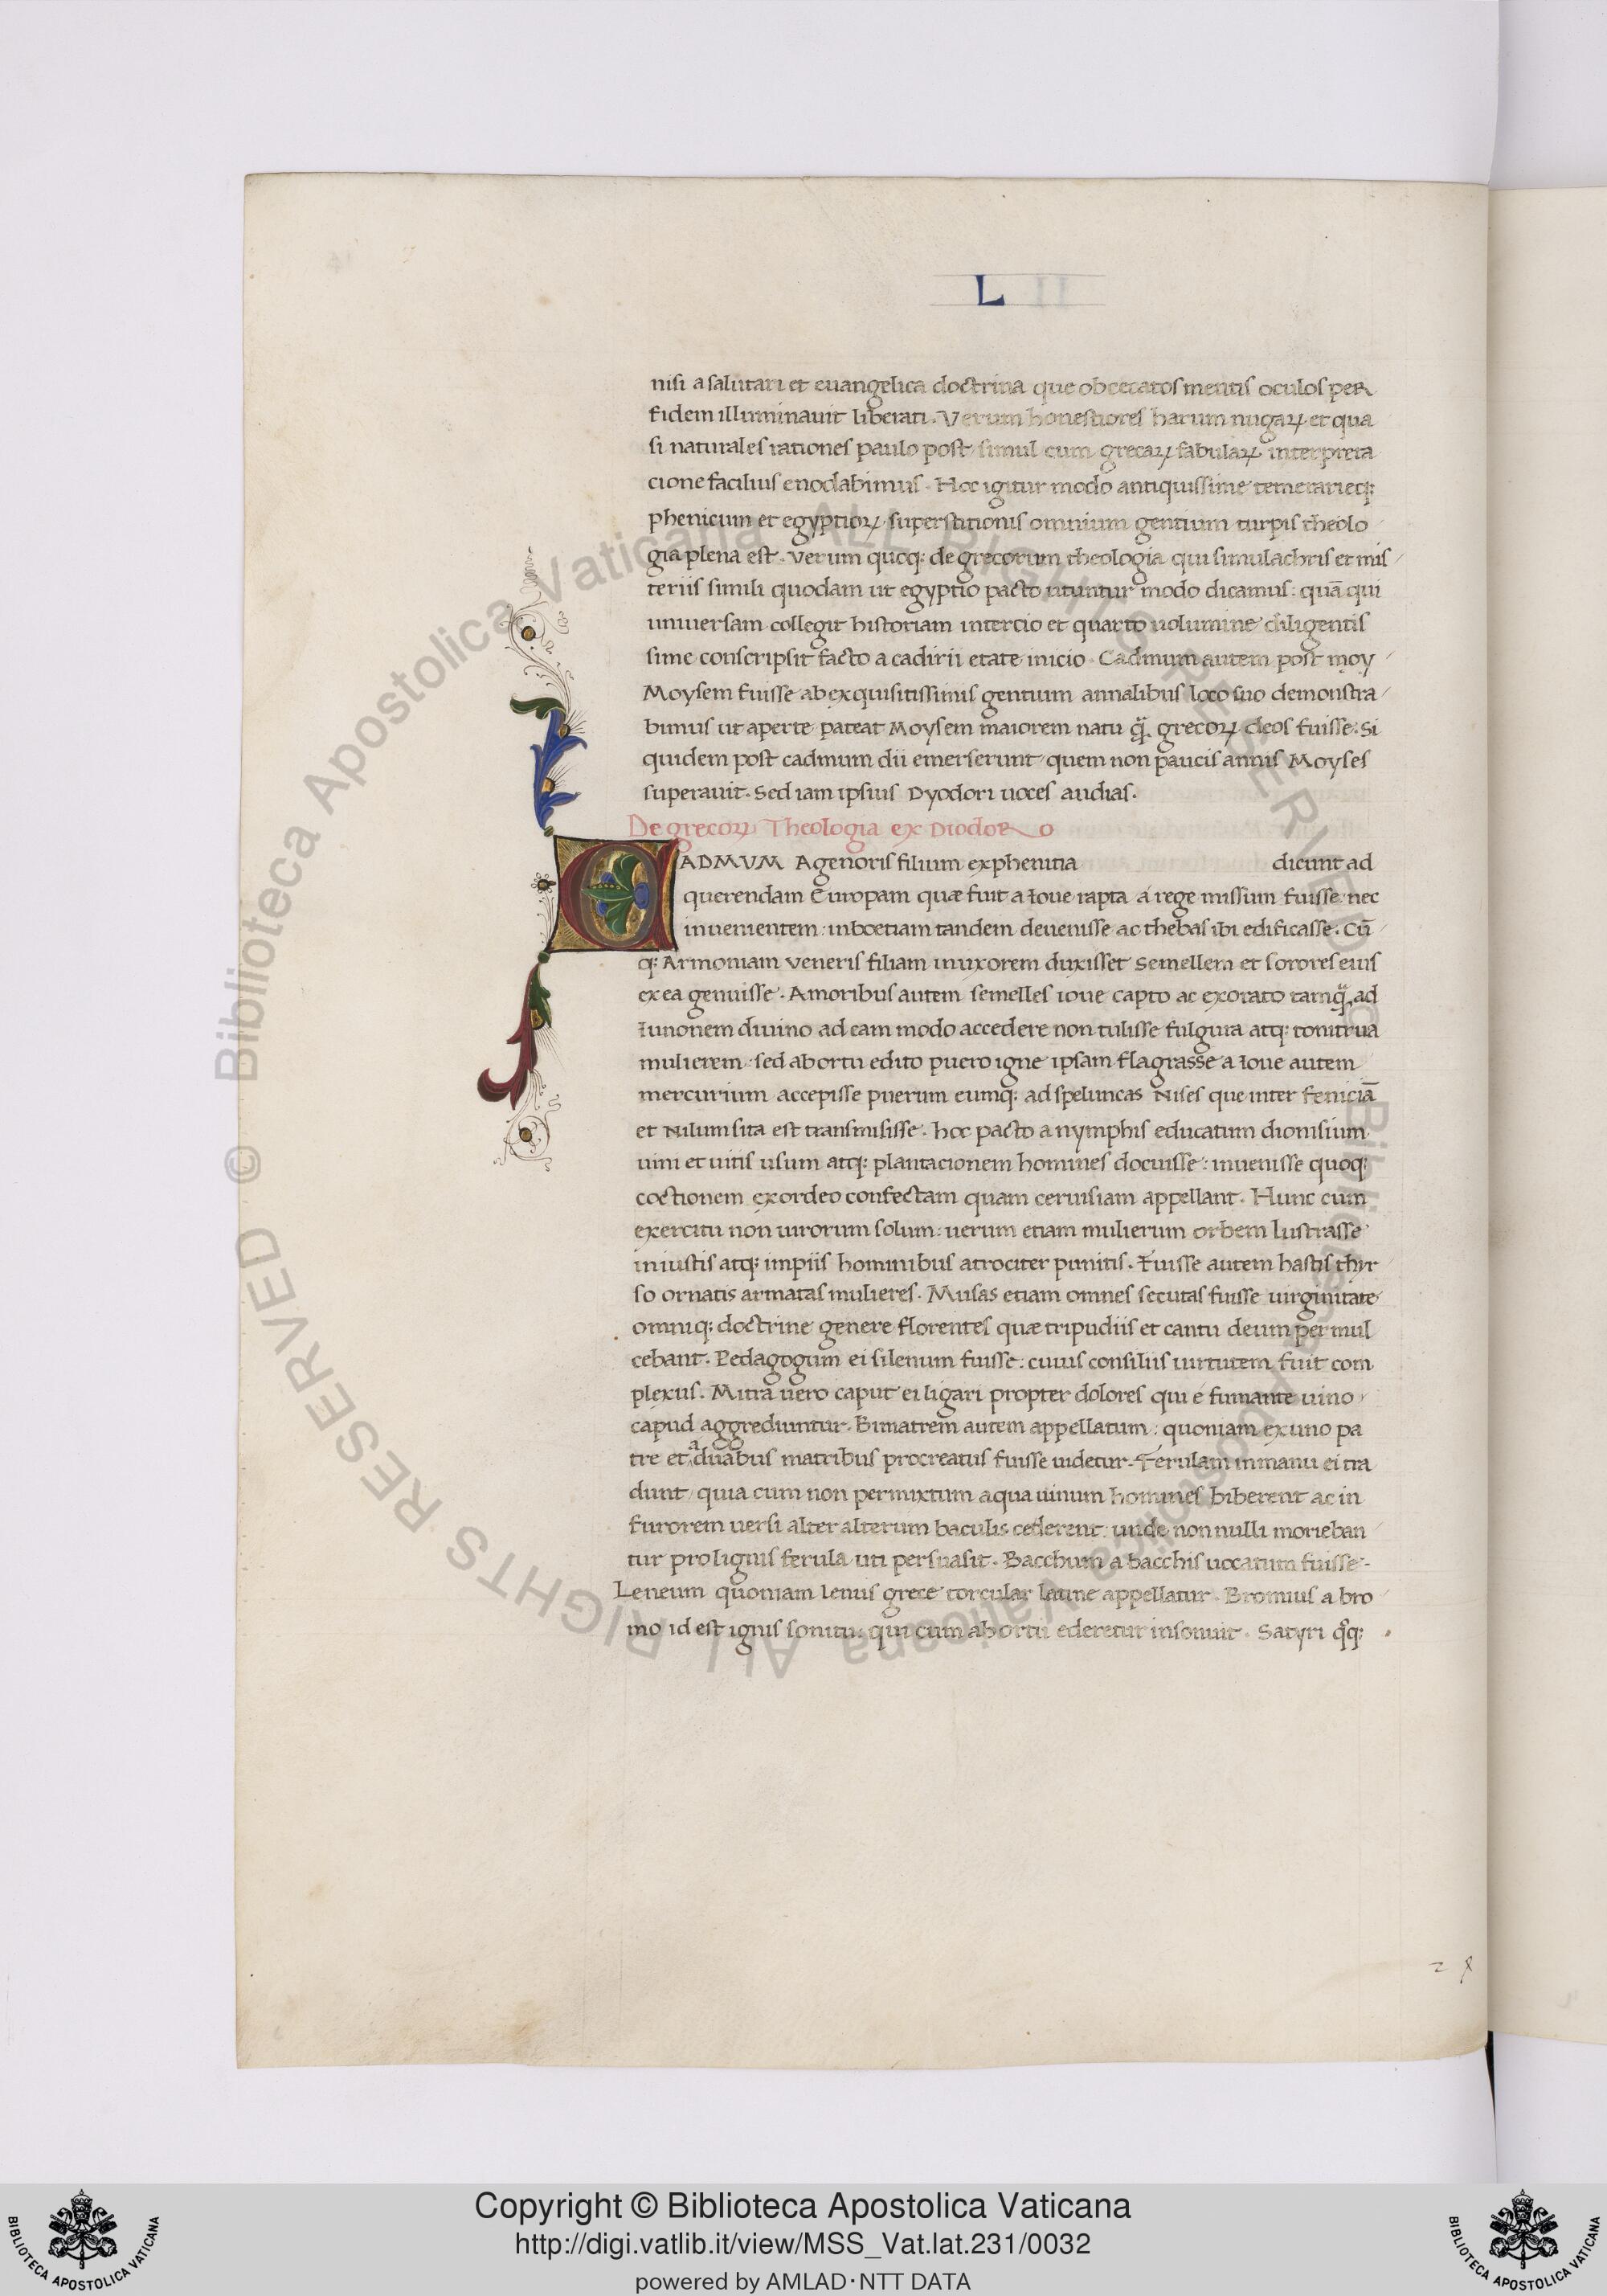 L
nisi a salutari et euangelica doctrina que obcecatos mentis oculos per
fidem illuminauit liberati. Verum honestiores harum nugaꝝ et qua
si naturales rationes paulo post simul cum grecaꝝ fabulaꝝ interpreta
cione facilius enodabimus. Hoc igitur modo antiquissime temerarieq;
phenicum et egyptioꝝ superstitionis omnium gentium turpis theolo
gia plena est. Verum quoq; de grecorum theologia qui simulachris et mis
teriis simili quodam ut egyptio pacto utuntur modo dicamus: quā qui
uniuersam collegit historiam in tercio et quarto uolumine diligentis
sime conscripsit facto a cadirii etate inicio. Cadmum autem post moy
Moysem fuisse ab exquisitissimis gentium annalibus loco suo demonstra
bimus ut aperte pateat Moysem maiorem natu q̃ grecoꝝ deos fuisse. Si
quidem post cadmum dii emerserunt quem non paucis annis Moyses
superauit. Sed iam ipsius Dyodori uoces audias.
De grecoꝝ Theologia ex Diodoro
CADMVM Agenoris filium ex phenitia dicunt ad
querendam Europam quæ fuit a Ioue rapta á rege missum fuisse nec
inuenientem: in boetiam tandem deuenisse ac thebas ibi edificasse. Cū
q; Armoniam veneris filiam in uxorem duxisset Semellem et sorores eius
ex ea genuisse. Amoribus autem semelles ioue capto ac exorato tamq̃ ad
Iunonem diuino ad eam modo accedere non tulisse fulgura atq; tonitrua
mulierem: sed abortu edito puero igne ipsam flagrasse a Ioue autem
mercurium accepisse puerum eumq; ad speluncas Nises que inter feniciā
et Nilum sita est transmisisse. hoc pacto a nymphis educatum dionisium
uini et uitis usum atq; plantacionem homines docuisse: inuenisse quoq;
coctionem ex ordeo confectam quam ceruisiam appellant. Hunc cum
exercitu non uirorum solum: uerum etiam mulierum orbem lustrasse
iniustis atq; impiis hominibus atrociter punitis. Fuisse autem hastis thyr
so ornatis armatas mulieres. Musas etiam omnes secutas fuisse uirginitate
omniq; doctrine genere florentes quæ tripudiis et cantu deum permul
cebant. Pedagogum ei silenum fuisse: cuius consiliis uirtutem fuit com
plexus. Mitra uero caput ei ligari propter dolores qui é fumante uino
capud aggrediuntur. Bimatrem autem appellatum: quoniam ex uno pa
tre et a duabus matribus procreatus fuisse uidetur. Ferulam in manu ei tra
dunt quia cum non permixtum aqua uinum homines biberent ac in
furorem uersi alter alterum baculis cederent: unde non nulli morieban
tur pro lignis ferula uti persuasit. Bacchum a bacchis uocatum fuisse.
Leneum quoniam lenus grece torcular latine appellatur. Bromius a bro
mo id est ignis sonitu: qui cum abortu ederetur insonuit. Satyri qͦq;
© Biblioteca Apostolica Vaticana ALL RIGHTS RESERVED
© Biblioteca Apostolica Vaticana ALL RIGHTS RESERVED
Copyright © Biblioteca Apostolica Vaticana
http://digi.vatlib.it/view/MSS_Vat.lat.231/0032
powered by AMLAD·NTT DATA
BIBLIOTECA APOSTOLICA VATICANA
BIBLIOTECA APOSTOLICA VATICANA